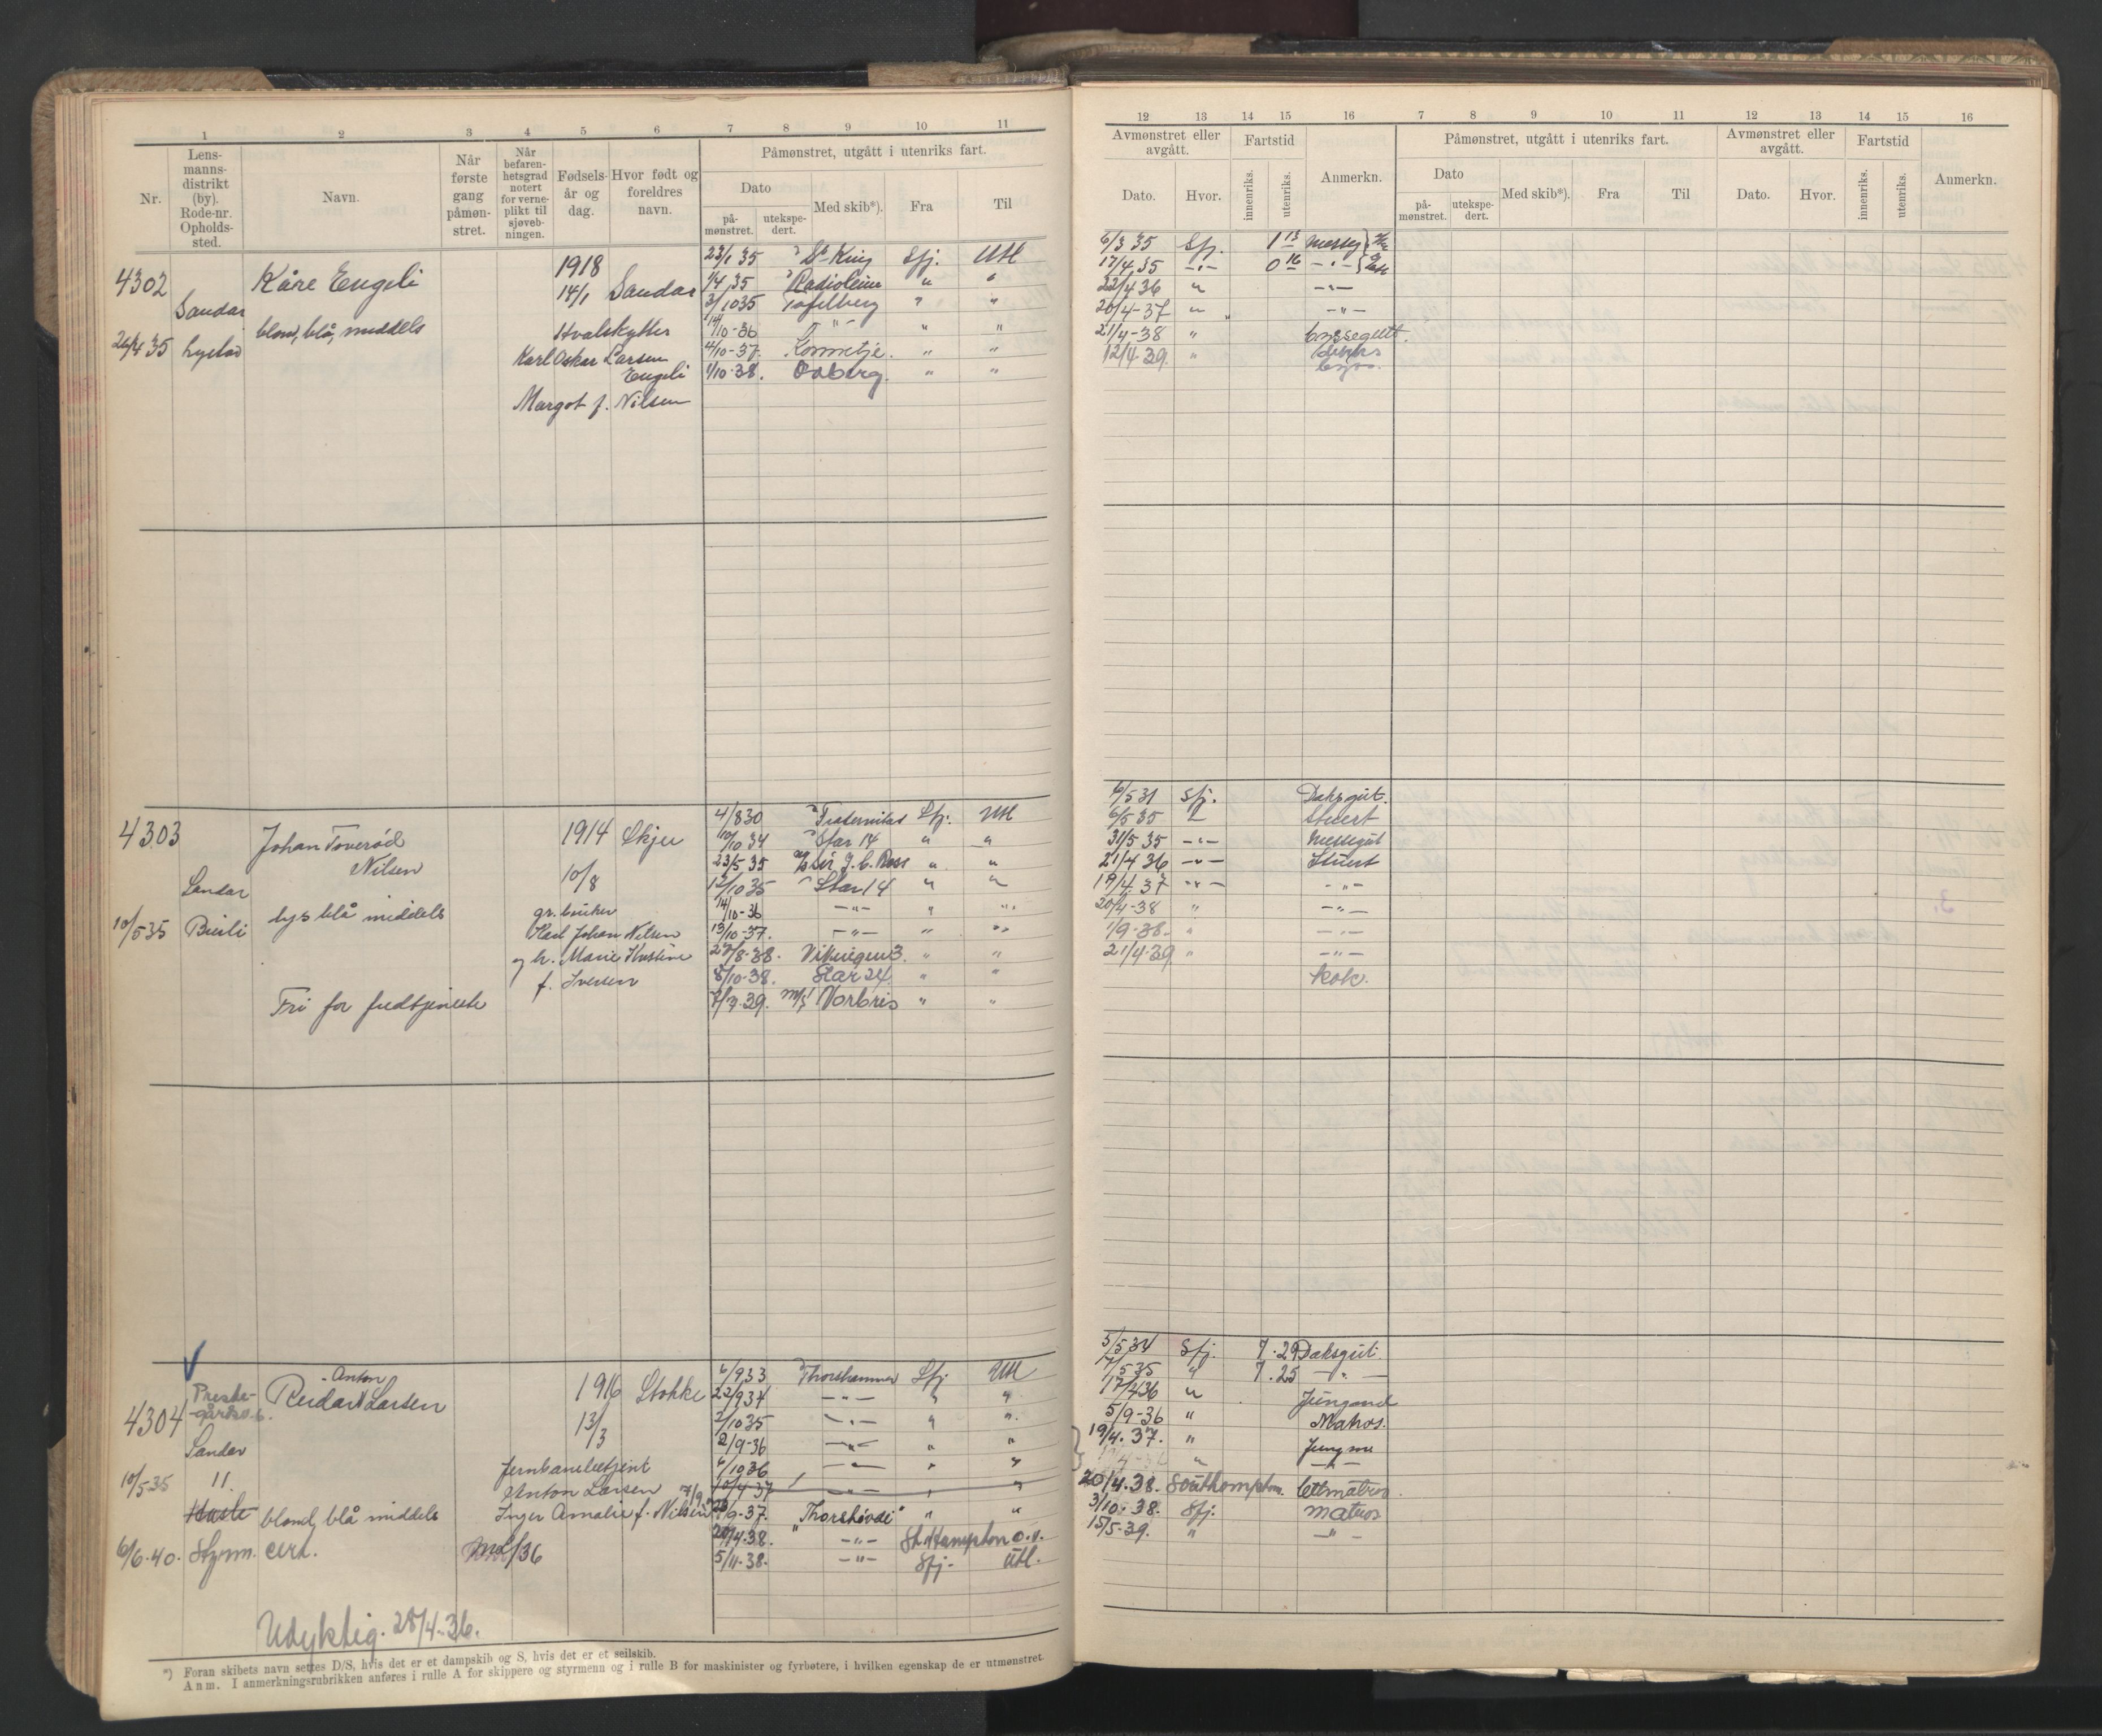 1 2 3 4 5 6 7 8 9 10 11
Nr.
Lens-
manns-
distrikt
(by).
Rode-nr.
Opholds-
sted.
Navn.
Når
første
gang
påmøn-
stret.
Når
befaren-
hetsgrad
notert
for verne-
plikt til
sjøveb-
ningen.
Fødsels-
år og
dag.
Hvor født og
foreldres
navn.
Påmønstret, utgått i utenriks fart.
Dato
på-
mønstret.
utekspe-
dert.
Med skib*).
Fra
Til
4302 Kåre Engeli 1918
14/1 Sandar
Sandar
blond, blå, middels Hvalskytter
26/4 35
Karl Oskar Larsen
Engeli
Margot f. Nilsen
23/1 35 Sfj. Utl
1/4 35 Radioleine " "
3/10 35 Tafelberg " "
14/10-36 - " - " "
4/10-37. Kommetje. " "
1/10-38. Odberg. " "
4303 Johan Toverød
Nilsen
1914 Skjee
10/8
Sandar
10/5 35 Bueli
lys blå middels
gr. bruker
Karl Johan Nilsen
og h. Marie Kristine
f. Iversen
Fri for fredstjeneste
4/8 30 Fraternitas Sfj. Utl
10/10 34 Star 14 " "
23/5 35 Sir J. C. Ross " "
12/10 35 Star 14 " "
14/10-36 - " - " "
13/10-37. - " - " "
27/8-38. Vikingen 3. " "
8/10-38. Star 24. " "
7/7-39. M/S Norbris " "
4304
Preste-
gårds
Anton
Reidar Larsen
1916 Stokke
13/3
Sandar
10/5-35 11.
blond, blå middels
Jernbanebetjent
Anton Larsen
Inger Amalie f. Nilsen
6/6-40. Styrm. cert.
6/9 33 Thorshammer Sfj Utl
22/9 34 - " - " "
2/10 35 - " - " "
2/9-36 - " - " "
6/10 36 - " - " "
10/4-37 - " - " "
9-37. "Thorshøvdi" " "
20/4-38. - " - St. Hampton o.v.
5/11-38. - " - Sfj. Utl.
Udyktig. 28/4-36.
*) Foran skibets navn settes D/S, hvis det er et dampskib og S, hvis det er et seilskib.
Anm. I anmerkningsrubrikken anføres i rulle A for skippere og styrmenn og i rulle B for maskinister og fyrbøtere, i hvilken egenskap de er utmønstret.
12 13 14 15 16 7 8 9 10 11 12 13 14 15 16
Avmønstret eller
avgått.
Dato.
Hvor.
Fartstid
innenriks.
utenriks.
Anmerkn.
Påmønstret, utgått i utenriks fart.
Dato
på-
mønstret.
utekspe-
dert.
Med skib*).
Fra
Til
Avmønstret eller
avgått.
Dato.
Hvor.
Fartstid
innenriks.
utenriks.
Anmerkn.
6/3 35 Sfj. 1 13
17/4 35 - " - 0 16 - " -
22/4 36 " - " -
20/4-37 " - " -
21/4-38 " byssegutt.
12/4-39. "
6/5 31 Sfj. Daksgut.
6/5 35 Stuert
31/5 35 - " - Messegut
21/4 36 - " - Stuert
19/4 37 - " - - " -
20/4-38 " - " -
1/9-38. " - " -
21/4-39 " - " -
kok.
5/5 34 Sfj. 7.29 Daksgut.
7/5 35 " 7.25 - " -
17/4 36 " Jungmand
5/9-36 " Matros.
19/4.37. " Jungm
" - " -
20/4.38. Southampton. Lettmatros.
3/10-38. Sfj. matros
15/5-39. " - " -